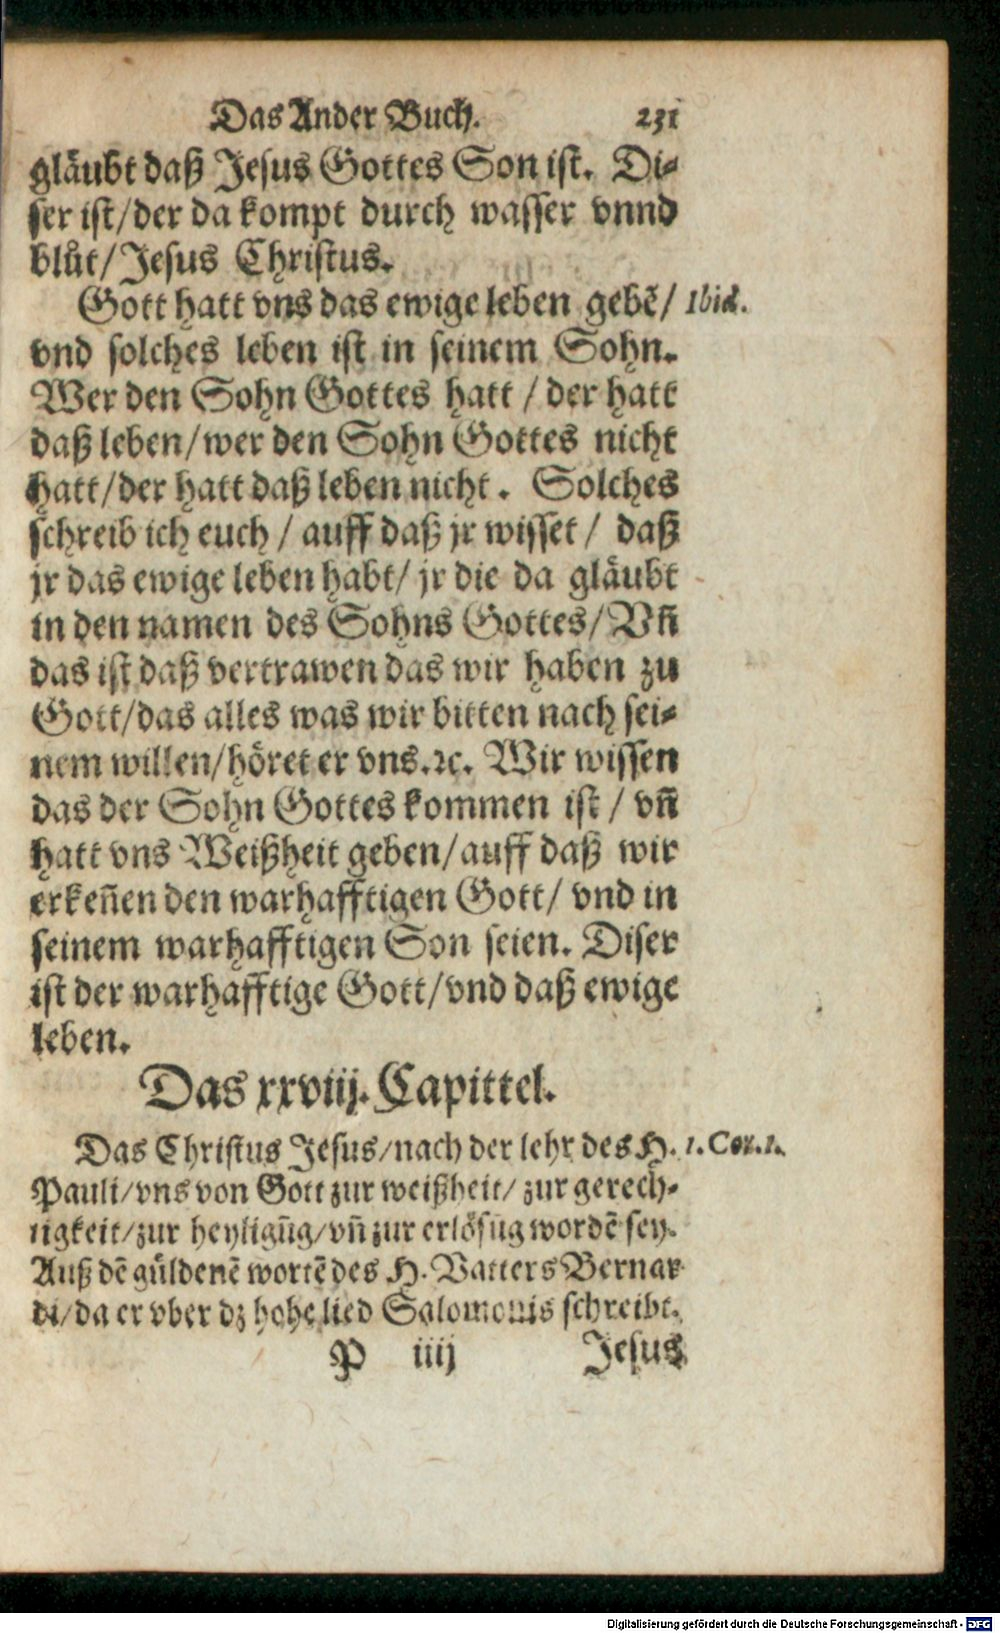 Das Ander Buch. 231
gläubt daß Jesus Gottes Son ist. Di⸗
ser ist/der da kompt durch wasser vnnd
bluͦt/Jesus Christus.
Gott hatt vns das ewige leben gebē/ Ibid.
vnd solches leben ist in seinem Sohn.
Wer den Sohn Gottes hatt / der hatt
daß leben/wer den Sohn Gottes nicht
hatt/der hatt daß leben nicht. Solches
schreib ich euch / auff daß jr wisset / daß
jr das ewige leben habt/ jr die da gläubt
in den namen des Sohns Gottes/ Vñ
das ist daß vertrawen das wir haben zu
Gott/das alles was wir bitten nach sei⸗
nem willen/höret er vns.ꝛc. Wir wissen
das der Sohn Gottes kommen ist / vñ
hatt vns Weißheit geben/auff daß wir
erkeñen den warhafftigen Gott/ vnd in
seinem warhafftigen Son seien. Diser
ist der warhafftige Gott/vnd daß ewige
leben.
Das xxviij. Capittel.
Das Christus Jesus/nach der lehr des H. 1. Cor. 1.
Pauli/vns von Gott zur weißheit/ zur gerech⸗
tigkeit/zur heyligūg/vñ zur erlösūg wordē sey.
Auß dē güldenē wortē des H. Vatters Bernar
di/da er vber dz hohe lied Salomonis schreibt.
P iiij Jesus
Digitalisierung gefördert durch die Deutsche Forschungsgemeinschaft - DFG